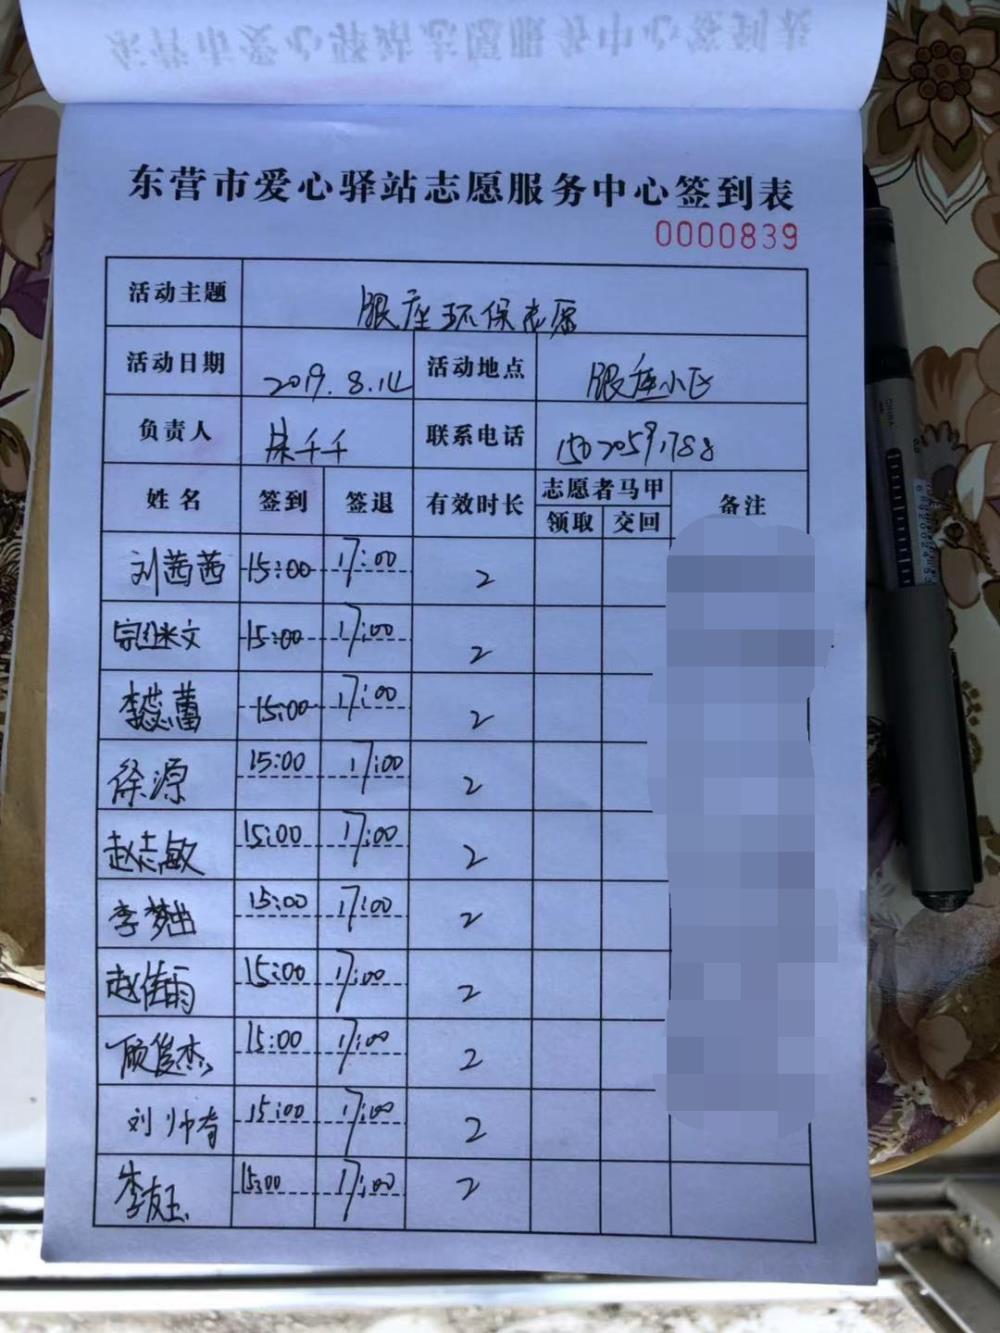 东营市爱心驿站志愿服务中心签到表
0000839
活动主题 银座环保志愿
活动日期 2019.8.14 活动地点 银座小区
负责人 朱千千 联系电话 15020591788
姓名 签到 签退 有效时长 志愿者马甲 备注
领取 交回
刘茜茜 15:00 17:00 2
15:00 17:00 2
李蕊蕾 15:00 17:00 2
徐源 15:00 17:00 2
赵志敏 15:00 17:00 2
李梦 15:00 17:00 2
赵倩雨 15:00 17:00 2
顾俊杰 15:00 17:00 2
刘帅奇 15:00 17:00 2
李友玉 15:00 17:00 2